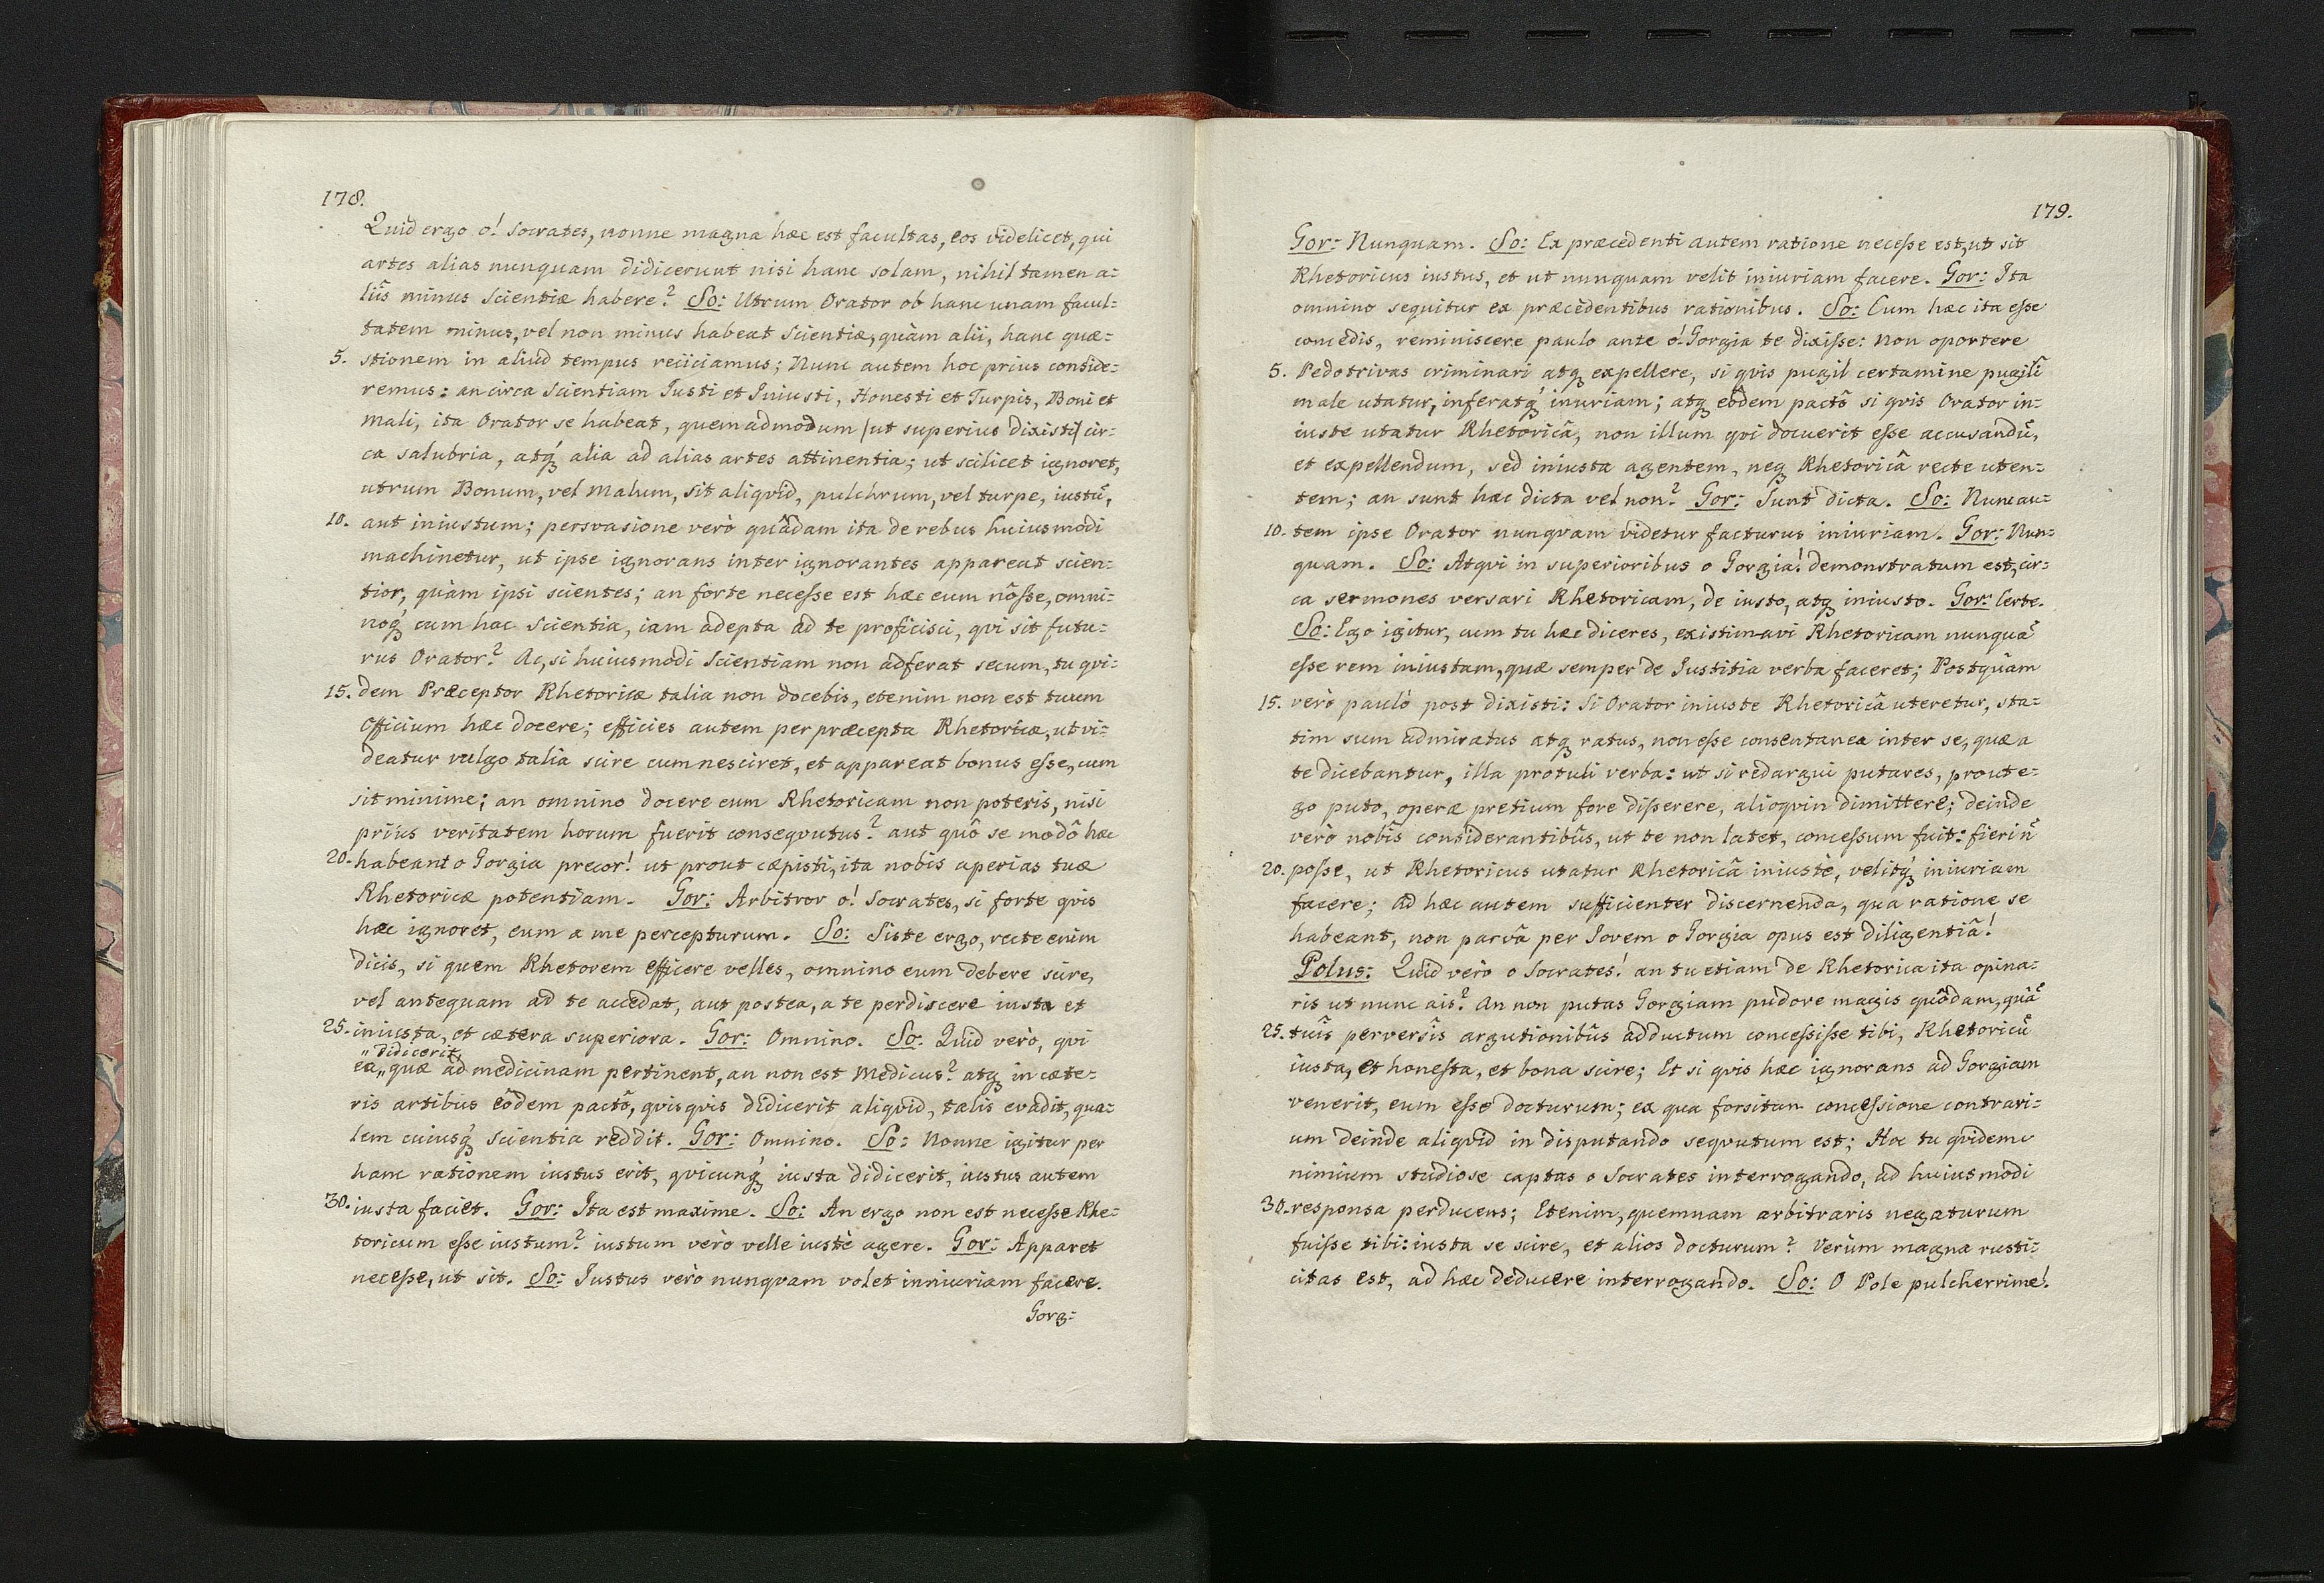 178.
Quid ergo o! Socrates, nonne magna hæc est facultas, eos videlicet, qui
artes alias nunquam didicerunt nisi hanc solam, nihil tamen a=
liîs minus Scientiæ habere? So: Utrum Orator ob hanc unam facul=
tatem minus, vel non minus habeat Scientiæ, quàm alii, hanc quæ=
5. stionem in aliud tempus reiiciamus; Nunc autem hoc prius conside=
remus: an circa Scientiam Iusti et Iniusti, Honesti et Turpis, Boni et
Mali, ita Orator se habeat, quemadmodum (ut superius dixisti) cir=
ca salubria, atq́ alia ad alias artes attinentia; ut scilicet ignoret,
utrum Bonum, vel Malum, sit aliqvid, pulchrum, vel turpe, iustū,
10. aut iniustum; persvasione verò quâdam ita de rebus huiusmodi
machinetur, ut ipse ignorans inter ignorantes appareat scien=
tior, quàm ipsi scientes; an forte necesse est hæc eum nôsse, omni=
noq́ cum hac Scientia, iam adepta ad te proficisci, qvi sit futu=
rus Orator? Ac, si huiusmodi Scientiam non adferat secum, tu qvi=
15. dem Præceptor Rhetoricæ talia non docebis, etenim non est tuum
Officium hæc docere; efficies autem per præcepta Rhetoricæ, ut vi=
deatur vulgo talia scire cum nesciret, et appareat bonus esse, cum
sit minime; an omnino docere eum Rhetoricam non poteris, nisi
priùs veritatem horum fuerit conseqvutus? aut quô se modô hæc
20. habeant o Gorgia precor! ut prout cæpisti, ita nobis aperias tuæ
Rhetoricæ potentiam. Gor: Arbitror o! Socrates, si forte qvis
hæc ignoret, eum a me percepturum. So: Siste ergo, recte enim
dicis, si quem Rhetorem efficere velles, omnino eum debere scire,
vel antequam ad te accedat, aut postea, a te perdiscere iusta et
25. iniusta, et cætera superiora. Gor: Omnino. So: Quid verò, qvi
„didicerit„
ea„ quæ ad medicinam pertinent, an non est Medicus? atq in cæte=
ris artibus eôdem pactô, qvisqvis didicerit aliqvid, talis evadit, qua=
lem cuiusq́ scientia reddit. Gor: Omnino. So: Nonne igitur per
hanc rationem iustus erit, qvicunq́ iusta didicerit, iustus autem
30. iusta faciet. Gor: Ita est maxime. So: An ergo non est necesse Rhe=
toricum esse iustum? iustum verò velle iustè agere. Gor: Apparet
necesse, ut sit. So: Iustus verò nunqvam volet inniuriam facere.
Gorg:
179.
Gor: Nunquam. So: Ex præcedenti autem ratione necesse est, ut sit
Rhetoricus iustus, et ut nunquam velit iniuriam facere. Gor: Ita
omnino sequitur ex præcedentibus rationibus. So: Cum hæc ita esse
concedis, reminiscere paulo ante ô! Gorgia te dixisse: Non oportere
5. Pedotrivas criminari atq expellere, si qvis pugil certamine pugilī
male utatur, inferatq́ inuriam; atq eôdem pactô si qvis Orator in=
iuste utatur Rhetoricâ, non illum qvi docuerit esse accusandū,
et expellendum, sed iniusta agentem, neq Rhetoricâ recte uten=
tem; an sunt hæc dicta vel non? Gor: Sunt dicta. So: Nunc au=
10. tem ipse Orator nunqvam videtur facturus iniuriam. Gor: Nun=
quam. So: Atqvi in superioribus o Gorgia! demonstratum est, cir=
ca sermones versari Rhetoricam, de iusto, atq iniusto. Gor: Certe.
So: Ego igitur, cum tu hæc diceres, existimavi Rhetoricam nunquā
esse rem iniustam, quæ semper de Iustitia verba faceret; Postquam
15. verò paulò post dixisti: Si Orator iniuste Rhetoricâ uteretur, sta=
tim sum admiratus atq ratus, non esse consentanea inter se, quæ a
te dicebantur, illa protuli verba: ut si redargui putares, prout e=
go puto, operæ pretium fore disserere, alioqvin dimittere; deinde
verò nobîs considerantibûs, ut te non latet, concessum fuit: fieri n̄
20. posse, ut Rhetoricus utatur Rhetoricâ iniustè, velitq́ iniuriam
facere; ad hæc autem sufficienter discernenda, qua ratione se
habeant, non parvâ per Iovem o Gorgia opus est diligentiâ!
Polus: Quid verò o Socrates! an tu etiam de Rhetorica ita opina=
ris ut nunc ais? An non putas Gorgiam pudore magis quôdam, quā
25. tuîs perversîs argutionibûs adductum concessisse tibi, Rhetoricū
iusta, et honesta, et bona scire; Et si qvis hæc ignorans ad Gorgiam
venerit, eum esse docturum; ex qua forsitan concessione contrari=
um deinde aliqvid in disputando seqvutum est; Hoc tu qvidem
nimium studiose captas o Socrates interrogando, ad huiusmodi
30. responsa perducens; Etenim, quemnam arbitraris negaturum
fuisse tibi: iusta se scire, et alios docturum? Verùm magna rusti=
citas est, ad hæc deducere interrogando. So: O Pole pulcherrime!